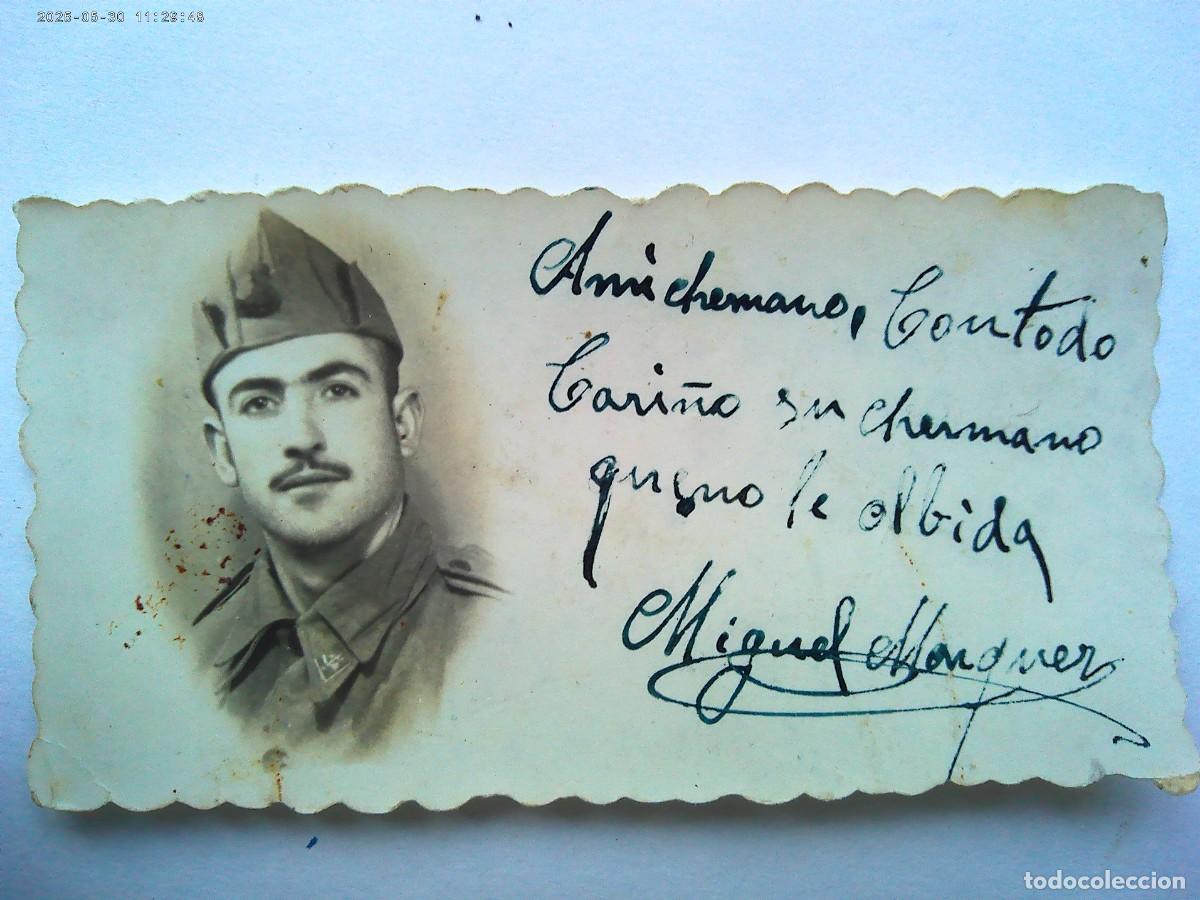 2025-05-30 11:29:48
Ami chemano, Con todo
Cariño su chermano
que no le olbida
Miguel Marquez
todocoleccion